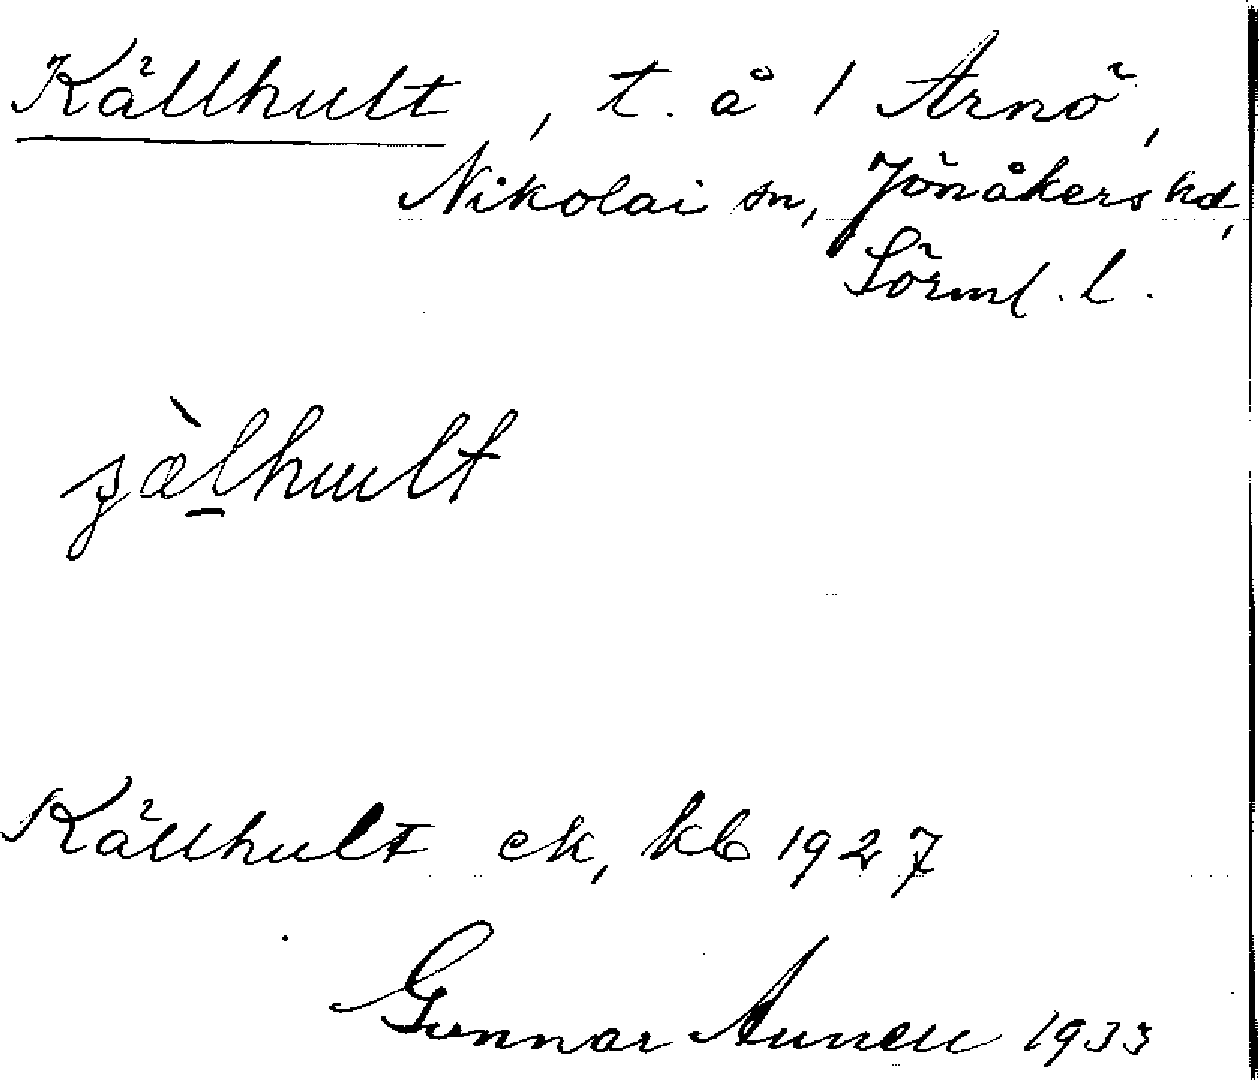 Källhult, t. å 1 Arnö,
Nikolai sn, Jönåkers hd,
Sörml. l.
hult
Källhult ek, kb 1927
Gunnar 1933